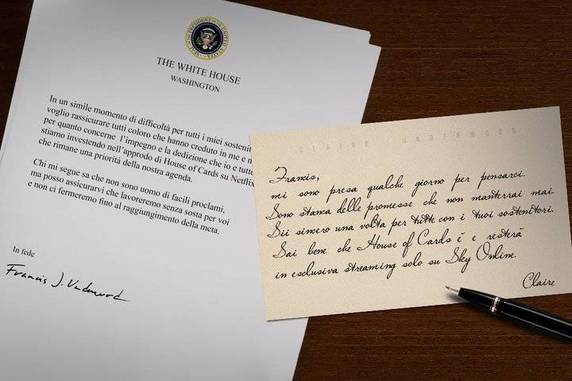 THE WHITE HOUSE
WASHINGTON
In un simile momento di difficoltà per tutti i miei sostenit
voglio rassicurare tutti coloro che hanno creduto in me e n
per quanto concerne l'impegno e la dedizione che io e tutto
stiamo investendo nell'approdo di House of Cards su Netflix
che rimane una priorità della nostra agenda.
Chi mi segue sa che non sono uomo di facili proclami,
ma posso assicurarvi che lavoreremo senza sosta per voi
e non ci fermeremo fino al raggiungimento della meta.
In fede
Francis J. Underwood
CLAIRE UNDERWOOD
Francis,
mi sono presa qualche giorno per pensarci.
Sono stanca delle promesse che non manterrai mai.
Sii sincero una volta per tutte con i tuoi sostenitori.
Sai bene che House of Cards è e resterà
in esclusiva streaming solo su Sky Online.
Claire